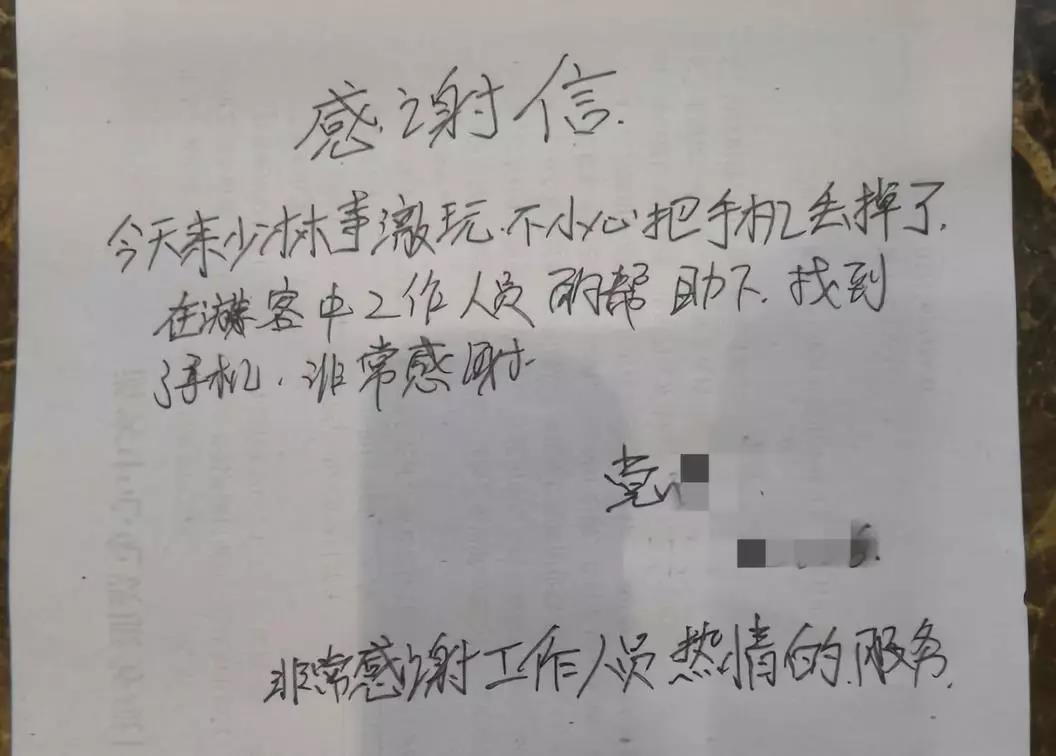 感谢信.
今天来少林寺游玩.不小心把手机丢掉了.
在游客中工作人员的帮助下.找到
手机.非常感谢
党
6.
非常感谢工作人员热情的服务.